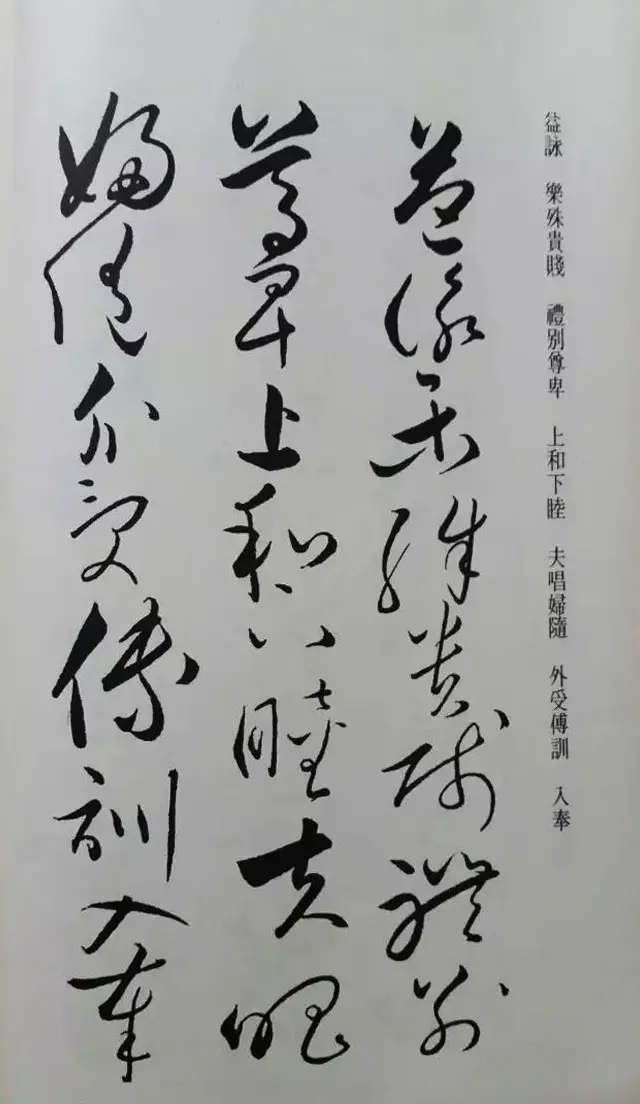 益詠 樂殊貴賤 禮別尊卑 上和下睦 夫唱婦隨 外受傅訓 入奉
益詠樂殊貴賤禮別
尊卑上和下睦夫唱
婦隨外受傅訓入奉